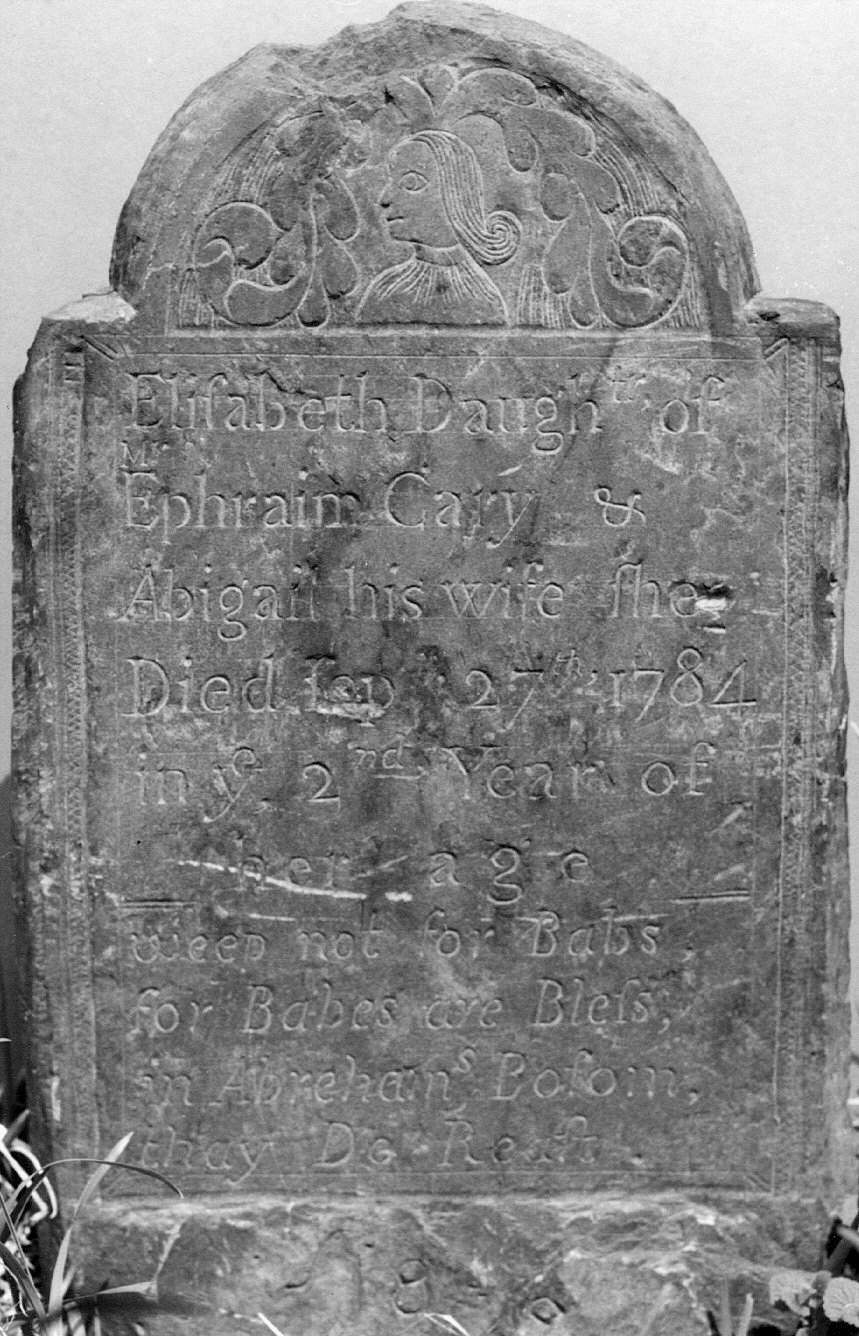 Eliſabeth Daughtr. of
Mr
Ephraim Cary &
Abigail his wife ſhe
Died ſep 27th 1784
in ye. 2nd Year of
her age
weep not for Babs,
for Babes are Bleſs,
in Abrehams Boſom,
thay Do Reaſt